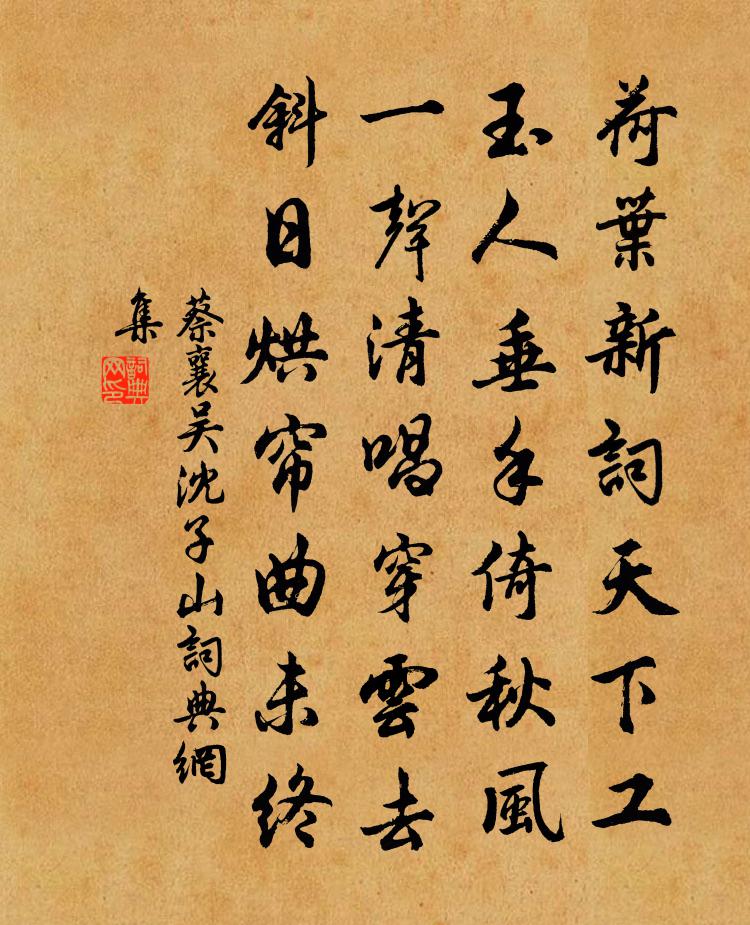 荷葉新詞天下工
玉人垂手倚秋風
一聲清唱穿雲去
斜日烘帘曲未終
蔡襄吴沈子山詞典網
集
詞典
网印